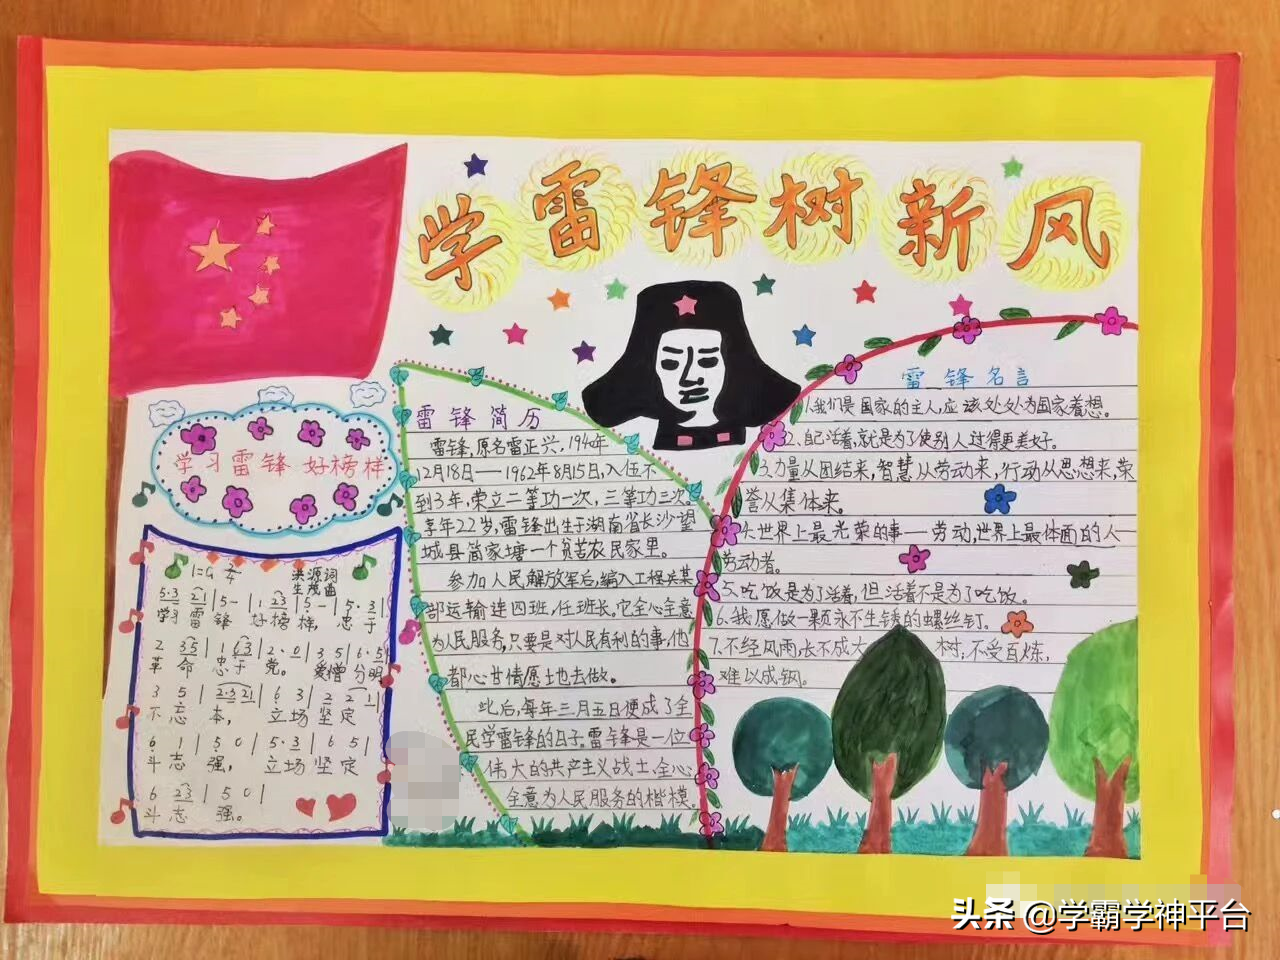 学雷锋树新风
学习雷锋 好榜样
1=G
洪源词
生茂曲
5·3 2 1 | 5 - | 1 2 3 | 5 - | 5·3 |
学习 雷 锋 好榜样, 忠于
2 3 5 | 1 6 3 | 2·0 | 3 5 | 6·5 |
革命 忠于 党。 爱憎 分明
3 5 | 2·3 2 1 | 6 3 | 2 2 1 |
不忘 本, 立场 坚定
6 1 | 5 0 | 5·3 | 6 5 |
斗志 强, 立场 坚定
6 2 3 | 5 0 |
斗志 强。
雷锋简历
雷锋,原名雷正兴,1940年
12月18日——1962年8月15日,入伍不
到3年,荣立二等功一次,三等功三次。
享年22岁,雷锋出生于湖南省长沙望
城县简家塘一个贫苦农民家里。
参加人民解放军后,编入工程兵某
部运输连四班,任班长。它全心全意
为人民服务,只要是对人民有利的事,他
都心甘情愿土地去做。
此后,每年三月五日便成了全
民学雷锋的日子。雷锋是一位
伟大的共产主义战士,全心
全意为人民服务的楷模。
雷锋名言
1.我们是国家的主人,应该处处为国家着想。
2、自己活着,就是为了使别人过得更美好。
3、力量从团结来,智慧从劳动来,行动从思想来,荣
誉从集体来。
4.世界上最光荣的事——劳动,世界上最体面的人—
劳动者。
5、吃饭是为了活着,但活着不是为了吃饭。
6、我愿做一颗永不生锈的螺丝钉。
7、不经风雨,长不成大树;不受百炼,
难以成钢。
头条 @学霸学神平台